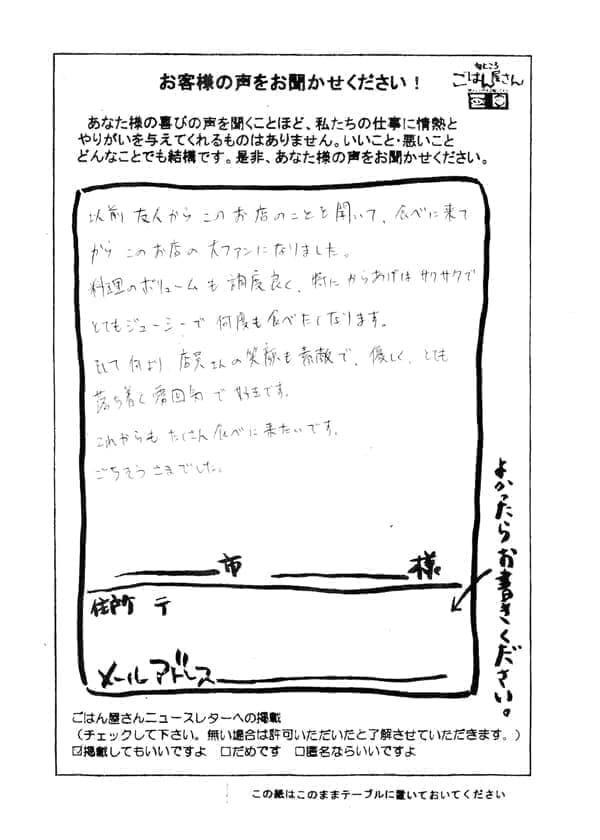 お客様の声をお聞かせください！
旬どころ
ごはん屋さん
あなた様の喜びの声を聞くことほど、私たちの仕事に情熱と
やりがいを与えてくれるものはありません。いいこと・悪いこと
どんなことでも結構です。是非、あなた様の声をお聞かせください。
以前 友人から このお店のことを聞いて、食べに来て
から このお店の大ファンになりました。
料理のボリュームも 調度良く、特に からあげは サクサクで
とてもジューシーで 何度も食べたくなります。
そして何より 店員さんの笑顔も素敵で、優しく、とても
落ち着く雰囲気で好きです。
これからも たくさん食べに来たいです。
ごちそうさまでした。
市 様
住所 〒
メールアドレス
よかったらお書きください。
ごはん屋さんニュースレターへの掲載
（チェックして下さい。無い場合は許可いただいたと了解させていただきます。）
☑掲載してもいいですよ □だめです □匿名ならいいですよ
この紙はこのままテーブルに置いておいてください